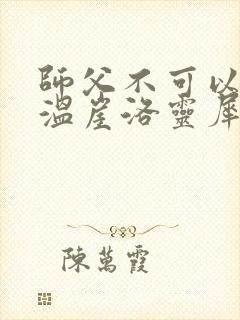 師父不可以
溫崖洛靈犀
陳萬霞